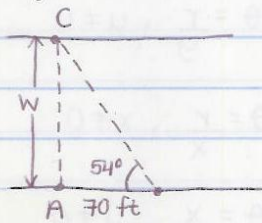 C
W
54°
A 70 ft